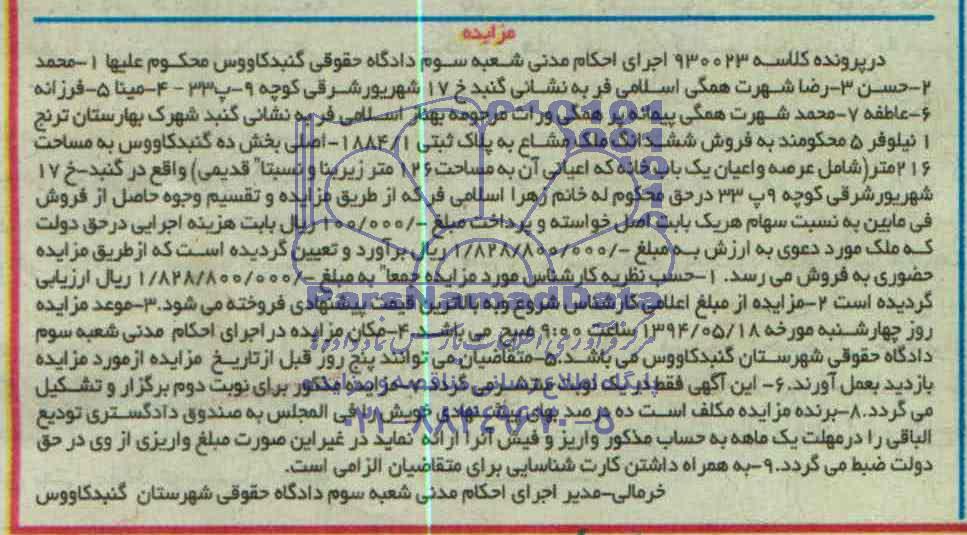 مزایده
درپرونده کلاسه ۹۳۰۰۲۳ اجرای احکام مدنی شعبه سوم دادگاه حقوقی گنبدکاووس محکوم علیها ۱-محمد
۲-حسن ۳-رضا شهرت همگی اسلامی فر به نشانی گنبد خ ۱۷ شهریورشرقی کوچه ۹-پ۳۳ - ۴-مینا ۵-فرزانه
۶-عاطفه ۷-محمد شهرت همگی پیمانه بر همگی وراث مرحومه بهناز اسلامی فر به نشانی گنبد شهرک بهارستان ترنج
۱ نیلوفر ۵ محکومند به فروش ششدانگ ملک مشاع به پلاک ثبتی ۱۸۸۴/۱-اصلی بخش ده گنبدکاووس به مساحت
۲۱۶متر(شامل عرصه واعیان یک باب خانه که اعیانی آن به مساحت۱۲۶ متر زیربنا و نسبتا" قدیمی) واقع در گنبد-خ ۱۷
شهریورشرقی کوچه ۹پ ۳۳ درحق محکوم له خانم زهرا اسلامی فر که از طریق مزایده و تقسیم وجوه حاصل از فروش
فی مابین به نسبت سهام هریک بابت اصل خواسته و پرداخت مبلغ -/۱۰۰/۰۰۰ ریال بابت هزینه اجرایی درحق دولت
که ملک مورد دعوی به ارزش به مبلغ -/۱/۸۲۸/۸۰۰/۰۰۰ ریال برآورد و تعیین گردیده است که ازطریق مزایده
حضوری به فروش می رسد. ۱-حسب نظریه کارشناس مورد مزایده جمعا" به مبلغ -/۱/۸۲۸/۸۰۰/۰۰۰ ریال ارزیابی
گردیده است ۲-مزایده از مبلغ اعلامی کارشناس شروع وبه بالاترین قیمت پیشنهادی فروخته می شود.۳-موعد مزایده
روز چهارشنبه مورخه ۱۳۹۴/۰۵/۱۸ ساعت ۹:۰۰ صبح می باشد.۴-مکان مزایده دراجرای احکام مدنی شعبه سوم
دادگاه حقوقی شهرستان گنبدکاووس می باشد.۵-متقاضیان می توانند پنج روز قبل ازتاریخ مزایده ازمورد مزایده
بازدید بعمل آورند.۶- این آگهی فقط در یک نوبت منتشر می گردد.۷-مزایده مذکور برای نوبت دوم برگزار و تشکیل
می گردد.۸-برنده مزایده مکلف است ده درصد بهای پیشنهادی خویش را فی المجلس به صندوق دادگستری تودیع
الباقی را درمهلت یک ماهه به حساب مذکور واریز و فیش آنرا ارائه نماید در غیراین صورت مبلغ واریزی از وی در حق
دولت ضبط می گردد.۹-به همراه داشتن کارت شناسایی برای متقاضیان الزامی است.
خرمالی-مدیر اجرای احکام مدنی شعبه سوم دادگاه حقوقی شهرستان گنبدکاووس
ParsNamadData
۰۲۱-۸۸۳۴۹۶۷۰-۵